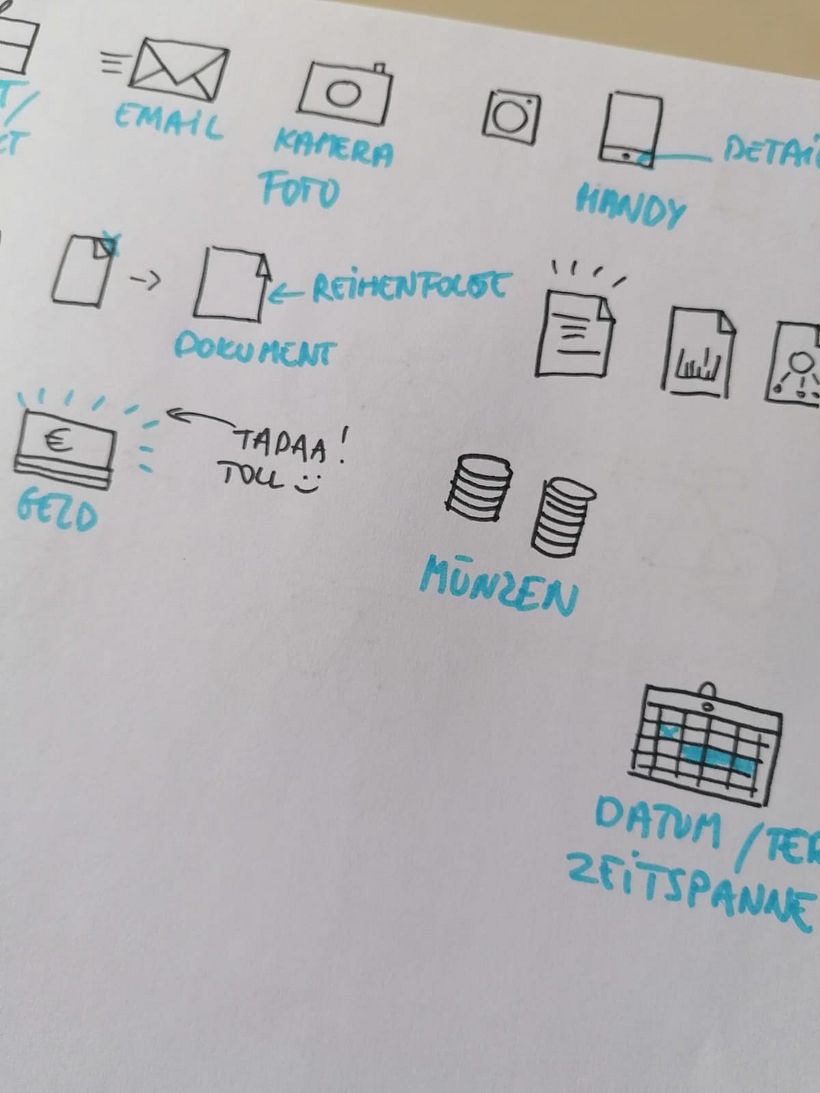 EMAIL
KAMERA
FOTO
HANDY
REIHENFOLGE
DOKUMENT
€
TADAA!
TOLL :)
GELD
MÜNZEN
DATUM /
ZEITSPANNE